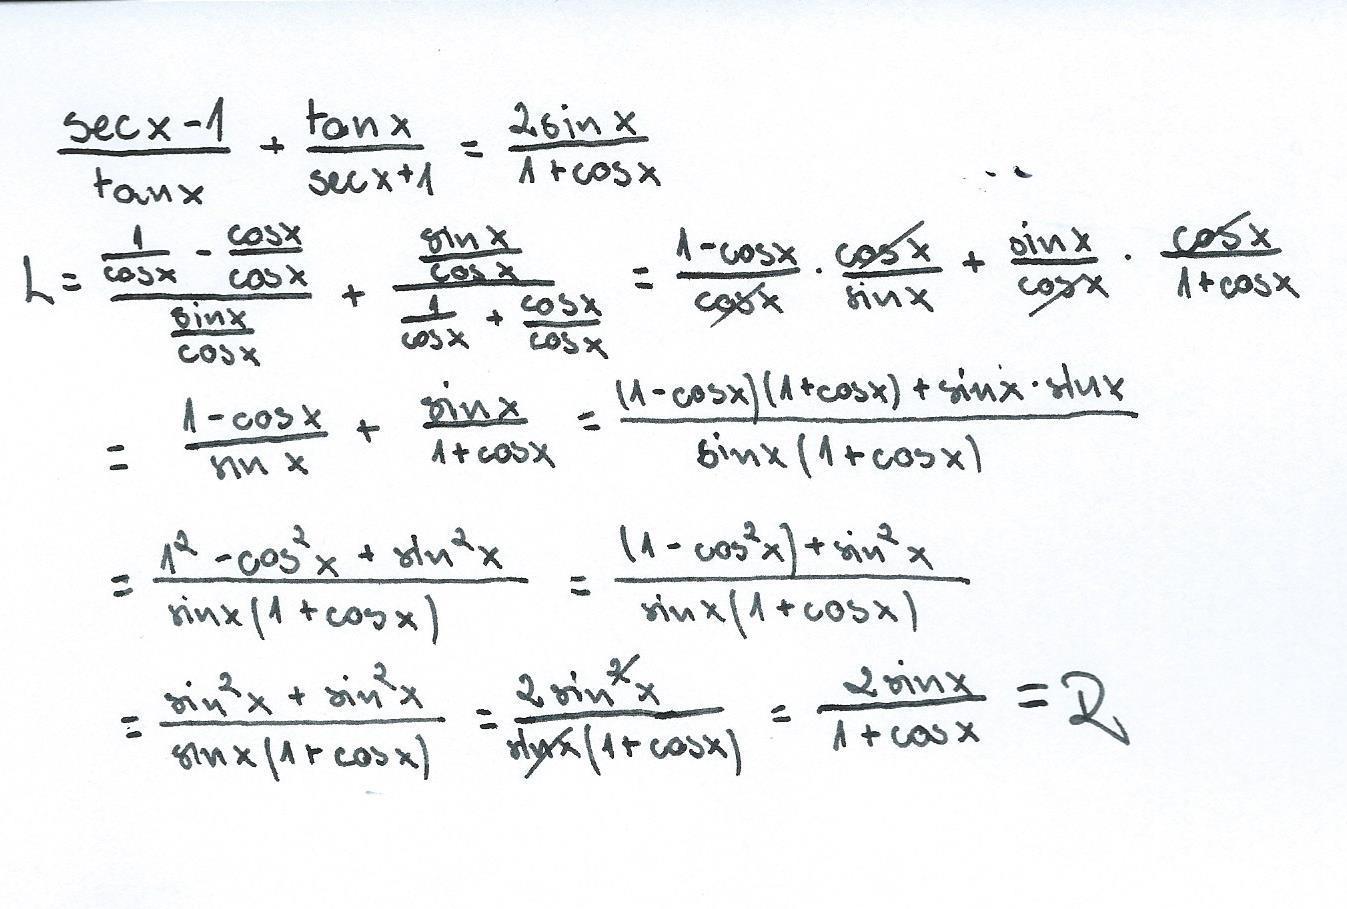 (sec x - 1)/(tan x) + (tan x)/(sec x + 1) = (2 sin x)/(1 + cos x)
L = (1/(cos x) - (cos x)/(cos x))/((sin x)/(cos x)) + ((sin x)/(cos x))/(1/(cos x) + (cos x)/(cos x)) = (1 - cos x)/(cos x) · (cos x)/(sin x) + (sin x)/(cos x) · (cos x)/(1 + cos x)
= (1 - cos x)/(sin x) + (sin x)/(1 + cos x) = ((1 - cos x)(1 + cos x) + sin x · sin x)/(sin x (1 + cos x))
= (1² - cos² x + sin² x)/(sin x (1 + cos x)) = ((1 - cos² x) + sin² x)/(sin x (1 + cos x))
= (sin² x + sin² x)/(sin x (1 + cos x)) = (2 sin² x)/(sin x (1 + cos x)) = (2 sin x)/(1 + cos x) = R